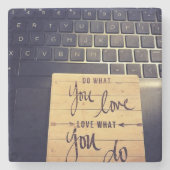 DO WHAT
you love
LOVE WHAT
you do